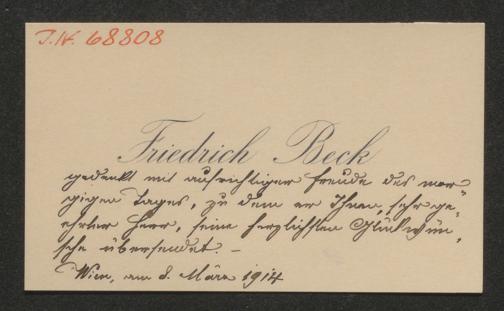 I.N. 68808
Friedrich Beck
gedenkt mit aufrichtiger Freude des mor=
gigen Tages, zu dem er Ihnen, sehr ge=
ehrter Herr, seine herzlichsten Glückwün=
sche übersendet. –
Wien, am 8. März 1914